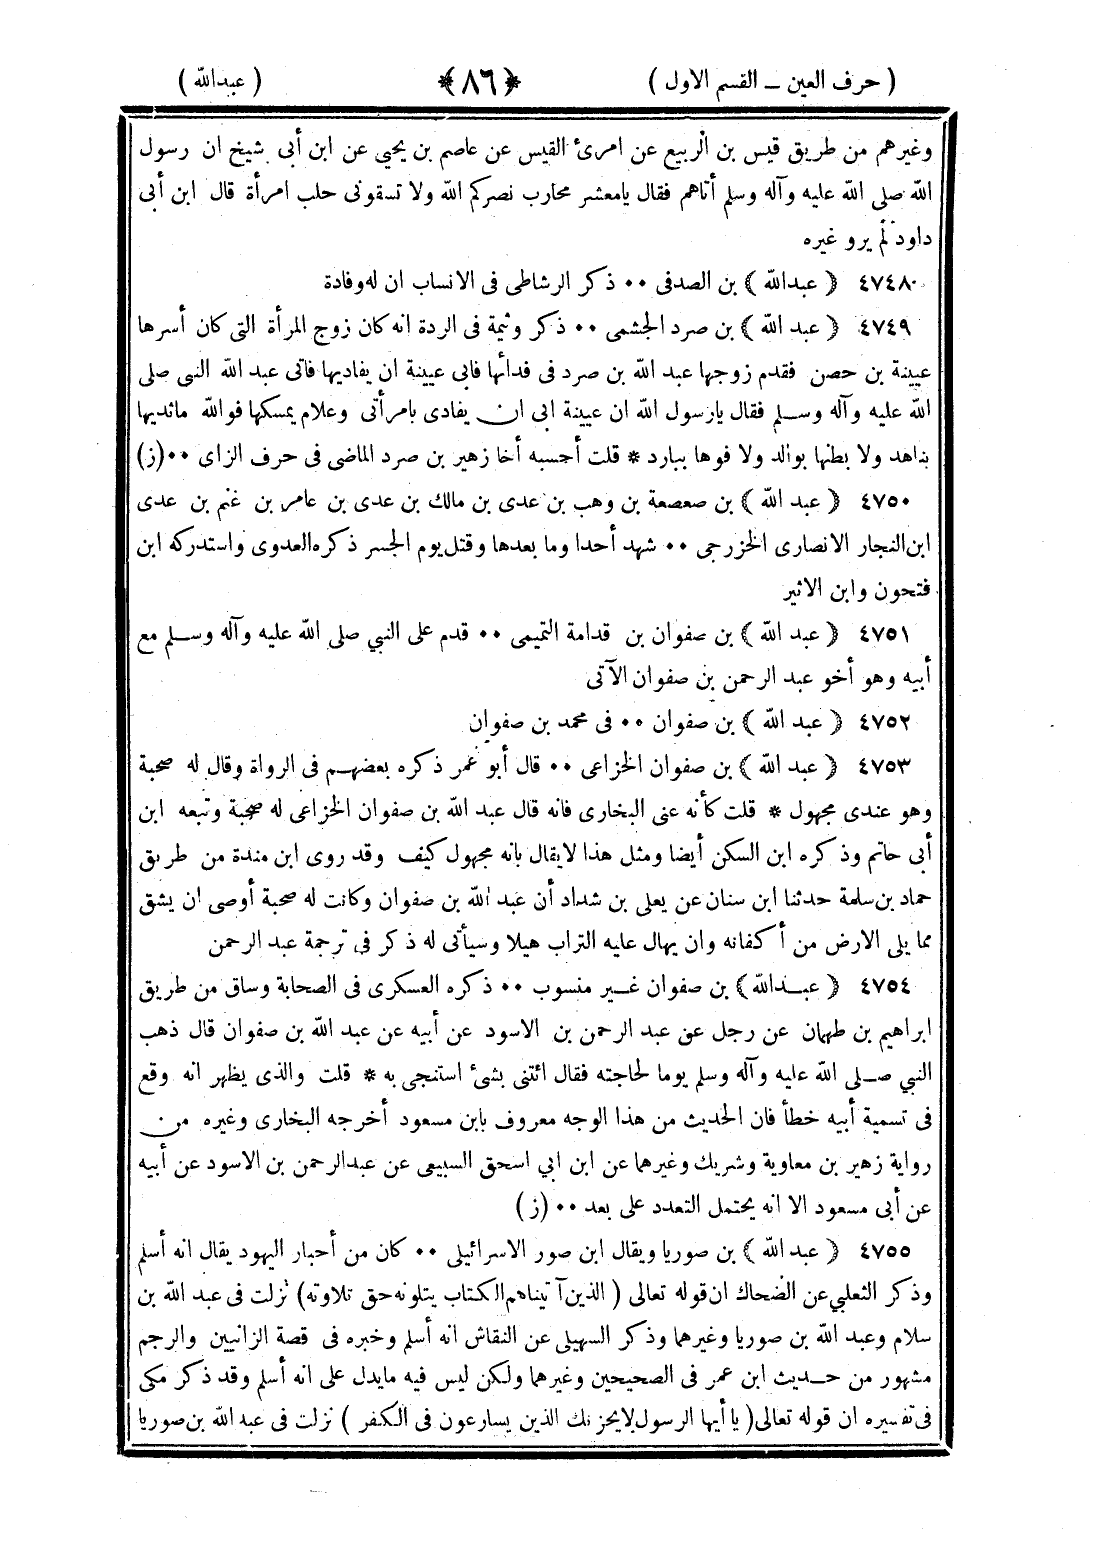 ( حرف العين ــ القسم الاول ) ﴿٨٦﴾ ( عبدالله )
وغيرهم من طريق قيس بن الربيع عن امرئ القيس عن عاصم بن يحيي عن ابن أبى شيخ ان رسول
الله صلى الله عليه وآله وسلم أتاهم فقال يامعشر محارب نصركم الله ولا تسقونى حلب امرأة قال ابن أبى
داود لم يرو غيره
٤٧٤٨ ﴿ عبدالله ﴾ بن الصدفى ٠٠ ذكر الرشاطى فى الانساب ان له وفادة
٤٧٤٩ ﴿ عبد الله ﴾ بن صرد الجشمى ٠٠ ذكر وثيمة فى الردة انه كان زوج المرأة التى كان أسرها
عيينة بن حصن فقدم زوجها عبد الله بن صرد فى فدائها فابى عيينة ان يفاديها فاتى عبد الله النبى صلى
الله عليه وآله وسلم فقال يارسول الله ان عيينة ابى ان يفادى بامرأتى وعلام يمسكها فوالله ماثديها
بناهد ولا بطنها بوالد ولا فوها ببارد * قلت أحسبه أخا زهير بن صرد الماضى فى حرف الزاى ٠٠ (ز)
٤٧٥٠ ﴿ عبد الله ﴾ بن صعصعة بن وهب بن عدى بن مالك بن عدى بن عامر بن غنم بن عدى
ابن النجار الانصارى الخزرجى ٠٠ شهد أحدا وما بعدها وقتل يوم الجسر ذكره العدوى واستدركه ابن
فتحون وابن الاثير
٤٧٥١ ﴿ عبد الله ﴾ بن صفوان بن قدامة التميمى ٠٠ قدم على النبي صلى الله عليه وآله وسلم مع
أبيه وهو أخو عبد الرحمن بن صفوان الآتى
٤٧٥٢ ﴿ عبد الله ﴾ بن صفوان ٠٠ فى محمد بن صفوان
٤٧٥٣ ﴿ عبد الله ﴾ بن صفوان الخزاعى ٠٠ قال أبو عمر ذكره بعضهم فى الرواة وقال له صحبة
وهو عندى مجهول * قلت كأنه عنى البخارى فانه قال عبد الله بن صفوان الخزاعى له صحبة وتبعه ابن
أبى حاتم وذكره ابن السكن أيضا ومثل هذا لايقال بانه مجهول كيف وقد روى ابن مندة من طريق
حماد بن سلمة حدثنا ابن سنان عن يعلى بن شداد أن عبد الله بن صفوان وكانت له صحبة أوصى ان يشق
مما يلى الارض من أكفانه وان يهال عليه التراب هيلا وسيأتى له ذكر فى ترجمة عبد الرحمن
٤٧٥٤ ﴿ عبدالله ﴾ بن صفوان غير منسوب ٠٠ ذكره العسكرى فى الصحابة وساق من طريق
ابراهيم بن طهمان عن رجل عن عبد الرحمن بن الاسود عن أبيه عن عبد الله بن صفوان قال ذهب
النبي صلى الله عليه وآله وسلم يوما لحاجته فقال ائتنى بشئ استنجى به * قلت والذى يظهر انه وقع
فى تسمية أبيه خطأ فان الحديث من هذا الوجه معروف بابن مسعود أخرجه البخارى وغيره من
رواية زهير بن معاوية وشريك وغيرهما عن ابن ابي اسحق السبيعى عن عبدالرحمن بن الاسود عن أبيه
عن أبى مسعود الا انه يحتمل التعدد على بعد ٠٠ (ز)
٤٧٥٥ ﴿ عبد الله ﴾ بن صوريا ويقال ابن صور الاسرائيلى ٠٠ كان من أحبار اليهود يقال انه أسلم
وذكر الثعلبي عن الضحاك ان قوله تعالى ( الذين آتيناهم الكتاب يتلونه حق تلاوته) نزلت فى عبد الله بن
سلام وعبد الله بن صوريا وغيرهما وذكر السهيلى عن النقاش انه أسلم وخبره فى قصة الزانيين والرجم
مشهور من حديث ابن عمر فى الصحيحين وغيرهما ولكن ليس فيه مايدل على انه أسلم وقد ذكر مكى
فى تفسيره ان قوله تعالى ( يا أيها الرسول لايحزنك الذين يسارعون فى الكفر ) نزلت فى عبد الله بن صوريا